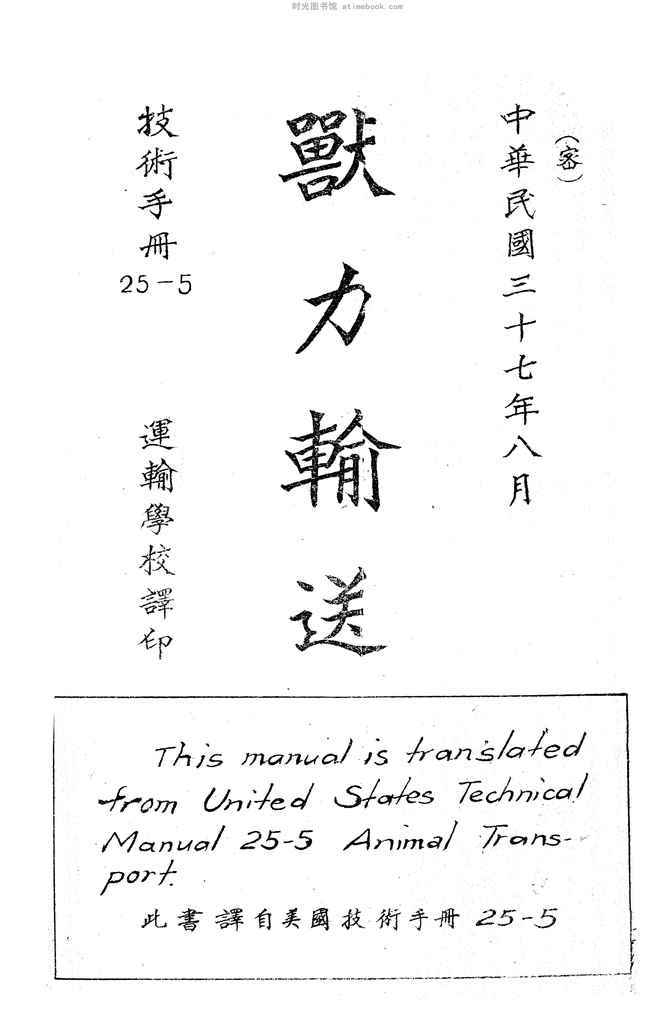 时光图书馆 atimebook.com
(密)
中華民國三十七年八月
獸力輸送
技術手冊
25-5
運輸學校譯印
This manual is translated
from United States Technical
Manual 25-5 Animal Trans-
port.
此書譯自美國技術手冊 25-5